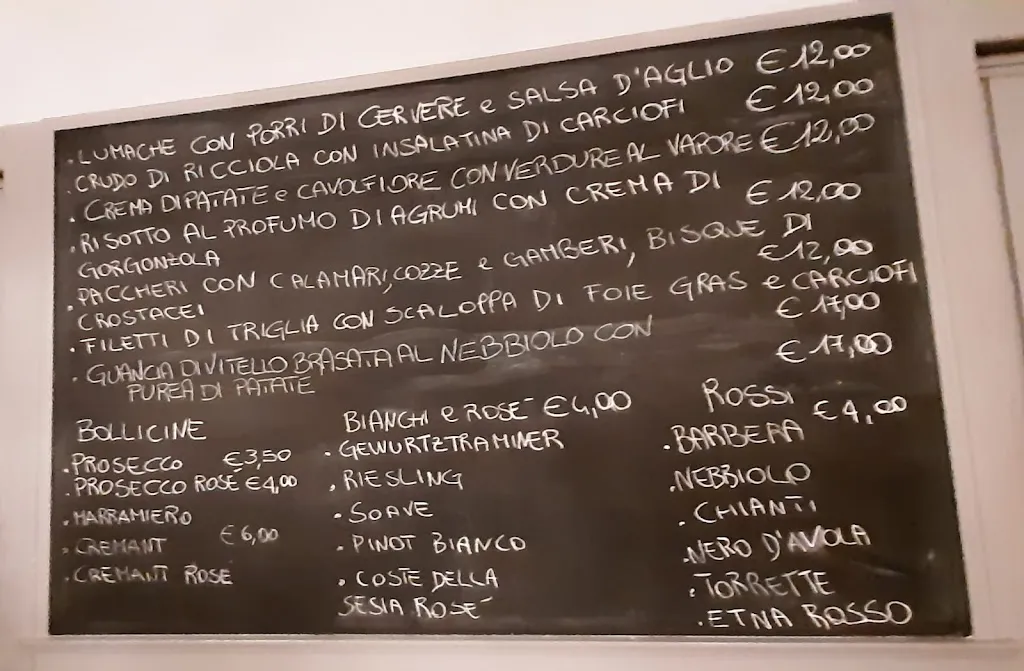 . LUMACHE CON PORRI DI CERVERE e SALSA D'AGLIO € 12,00
. CRUDO DI RICCIOLA CON INSALATINA DI CARCIOFI € 12,00
. CREMA DI PATATE e CAVOLFIORE CON VERDURE AL VAPORE € 12,00
. RISOTTO AL PROFUMO DI AGRUMI CON CREMA DI € 12,00
GORGONZOLA
. PACCHERI CON CALAMARI, COZZE e GAMBERI, BISQUE DI
CROSTACEI € 12,00
. FILETTI DI TRIGLIA CON SCALOPPA DI FOIE GRAS e CARCIOFI
€ 17,00
. GUANCIA DI VITELLO BRASATA AL NEBBIOLO CON
PUREA DI PATATE € 17,00
BOLLICINE
. PROSECCO €3,50
. PROSECCO ROSÈ €4,00
. MARRAMIERO
. CREMANT € 6,00
. CREMANT ROSE
BIANCHI e ROSE' €4,00
. GEWURTZTRAMINER
. RIESLING
. SOAVE
. PINOT BIANCO
. COSTE DELLA
SESIA ROSE'
ROSSI € 4,00
. BARBERA
. NEBBIOLO
. CHIANTI
. NERO D'AVOLA
. TORRETTE
. ETNA ROSSO